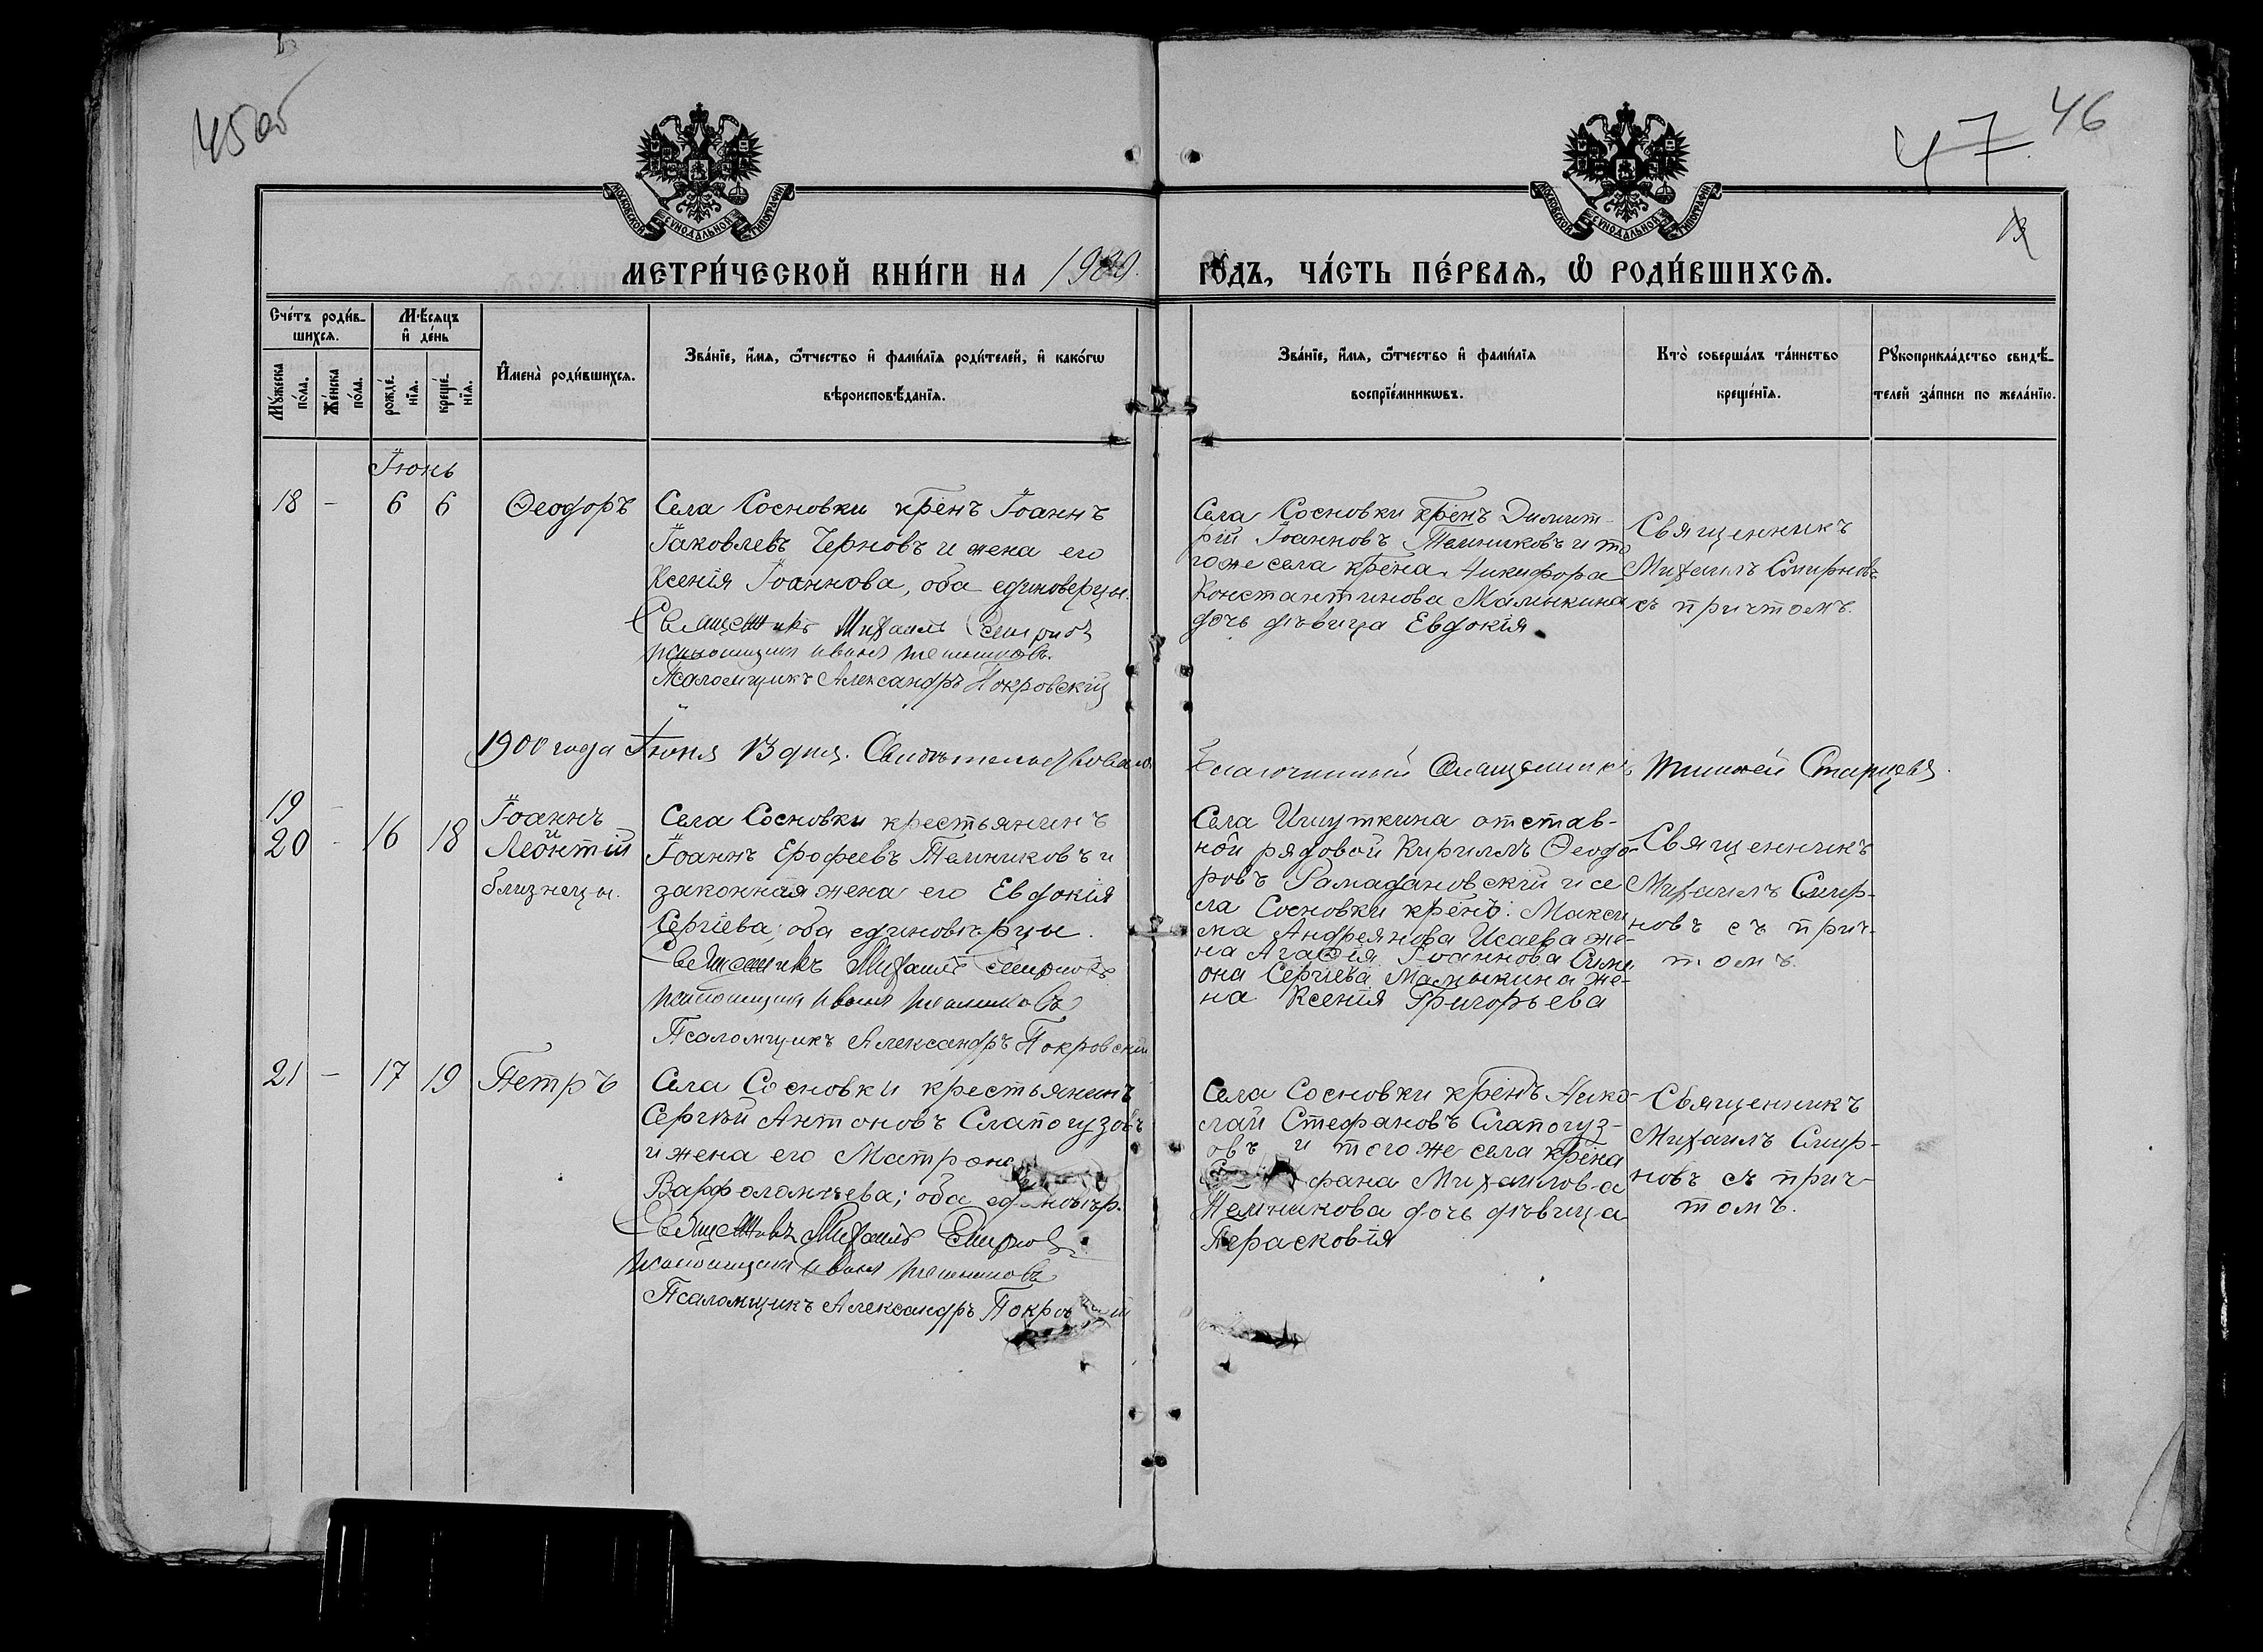 45об
47
46
13
МОСКОВСКОЙ СѴНОДАЛЬНОЙ ТИПОГРАФІИ
МОСКОВСКОЙ СѴНОДАЛЬНОЙ ТИПОГРАФІИ
МЕТРИ́ЧЕСКОЙ КНИ́ГИ НА 1900 ГО́ДЪ, ЧА́СТЬ ПЕ́РВАѦ, Ѽ РОДИ́ВШИХСѦ.
Сче́тъ роди́в-
шихсѧ.
Мꙋ́жеска
по́ла.
Же́нска
по́ла.
Мѣ́сѧцъ
и҆ де́нь
рожде́-
нїѧ.
креще́-
нїѧ.
И҆мена̀ роди́вшихсѧ.
Зва́нїе, и҆́мѧ, ѻ҆́тчество и҆ фами́лїѧ роди́телей, и҆ како́гѡ
вѣроисповѣ́данїѧ.
Зва́нїе, и҆́мѧ, ѻ҆́тчество и҆ фами́лїѧ
воспрїе́мникѡвъ.
Кто̀ соверша́лъ та́инство
креще́нїѧ.
Рꙋкоприкла́дство свидѣ́-
телей за́писи по жела́нїю.
Іюнь
18 - 6 6 Ѳеодоръ
Села Сосновки крѣнъ Іоаннъ
Іаковлевъ Черновъ и жена его
Ксенія Іоаннова, оба единоверцы.
Священникъ Михаилъ Смирновъ
Псаломщикъ Иванъ Темниковъ.
Псаломщикъ Александръ Покровскій
Села Сосновки крѣнъ Димит-
рій Іоанновъ Темниковъ и то
гоже села крѣна Никифора
Константинова Малыкина
дочь дѣвица Евдокія.
Священникъ
Михаилъ Смирновъ
съ причтомъ.
1900 года Іюня 13 дня. Свидѣтельствовалъ Благочинный Священникъ Тимоѳей Старцевъ.
19 -
20 - 16 18
Іоаннъ
и
Леонтій
близнецы.
Села Сосновки крестьянинъ
Іоаннъ Ерофеевъ Темниковъ и
законная жена его Евдокія
Сергіева; оба единовѣрцы.
Священникъ Михаилъ Смирновъ
Псаломщикъ Иванъ Темниковъ
Псаломщикъ Александръ Покровскій
Села Ишуткина отстав-
ной рядовой Кириллъ Ѳеодо-
ровъ Рамадановскій и се
ла Сосновки крѣнъ: Макси
ма Андреянова Исаева же-
на Агаѳія Іоаннова Симе
она Сергіева Малыкина же-
на Ксенія Григорьева
Священникъ
Михаилъ Смир-
новъ съ прич-
томъ.
21 - 17 19 Петръ
Села Сосновки крестьянинъ
Сергѣй Антоновъ Слапогузовъ
и жена его Матрона
Варфоломѣева; оба единовѣр.
Священникъ Михаилъ Смирновъ
Псаломщикъ Иванъ Темниковъ
Псаломщикъ Александръ Покровскій
Села Сосновки крѣнъ Нико-
лай Стефановъ Слапогуз-
овъ и того же села крѣна
фана Михаилова
Темникова дочь дѣвица
Парасковія
Священникъ
Михаилъ Смир-
новъ съ прич-
томъ.